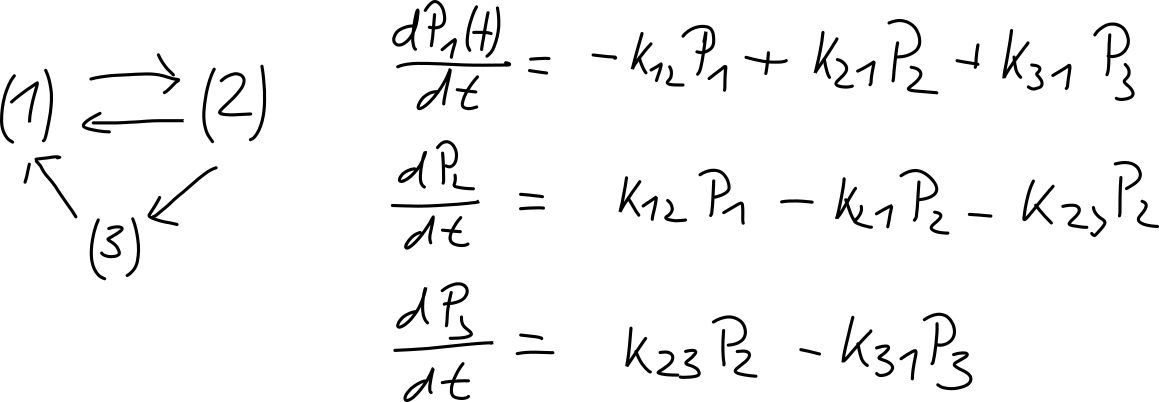 (1) ⇄ (2)
(3)
dP₁(t)/dt = −k₁₂P₁ + k₂₁P₂ + k₃₁P₃
dP₂/dt = k₁₂P₁ − k₂₁P₂ − k₂₃P₂
dP₃/dt = k₂₃P₂ − k₃₁P₃